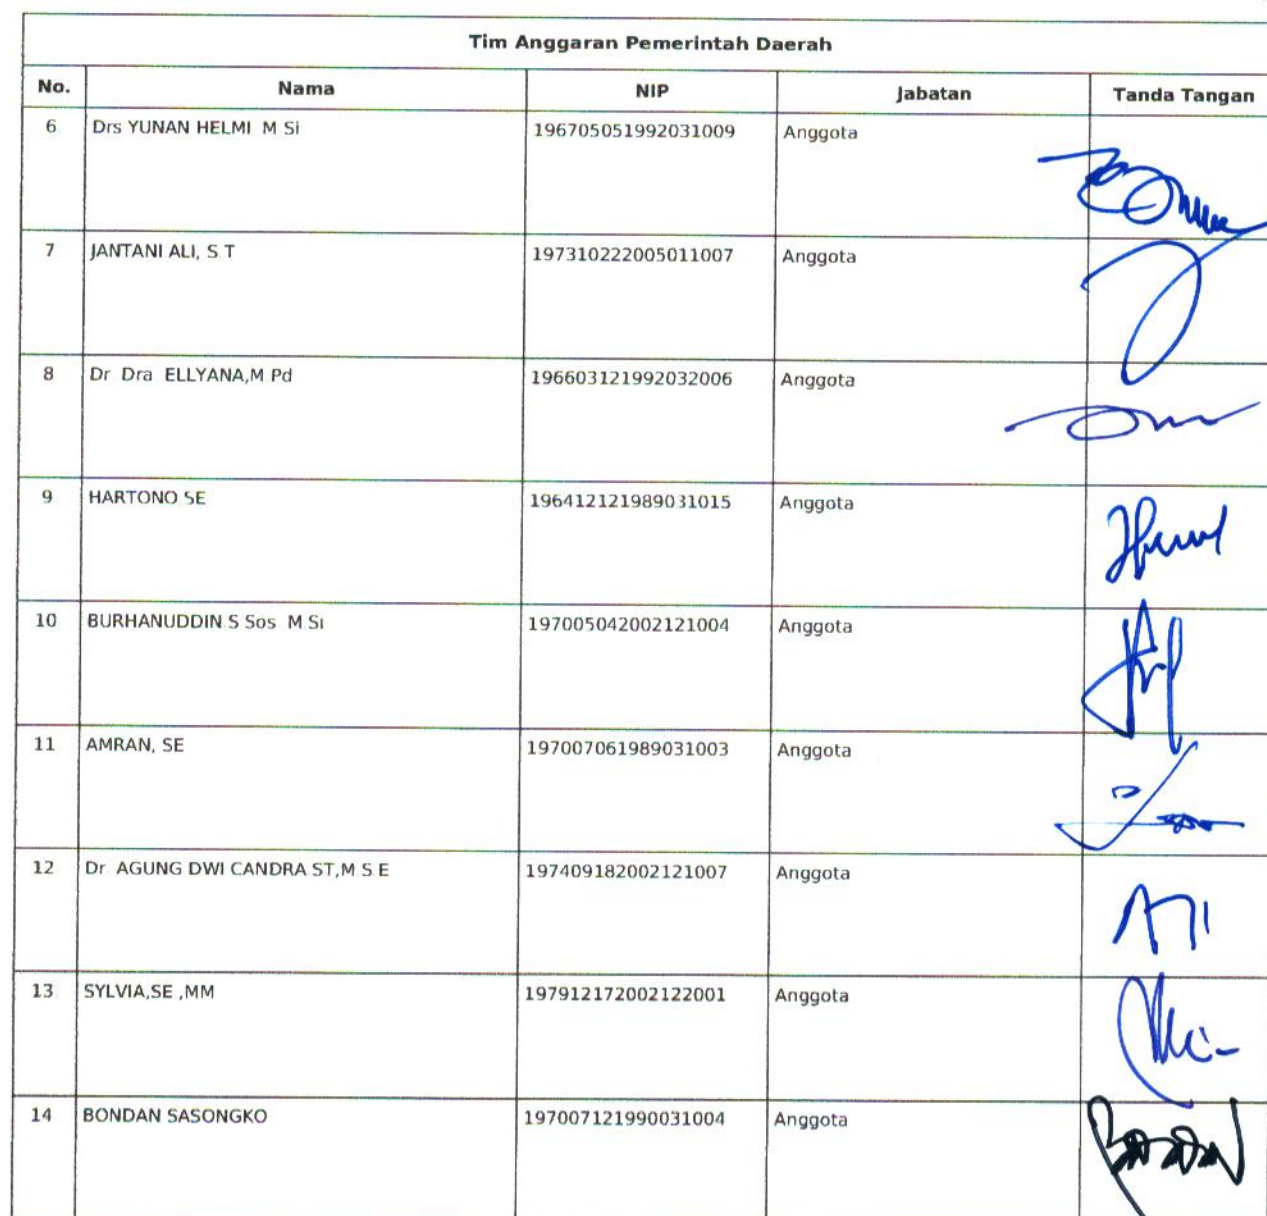 Tim Anggaran Pemerintah Daerah
No. Nama NIP Jabatan Tanda Tangan
6 Drs YUNAN HELMI M Si 196705051992031009 Anggota
7 JANTANI ALI, S T 197310222005011007 Anggota
8 Dr Dra ELLYANA,M Pd 196603121992032006 Anggota
9 HARTONO SE 196412121989031015 Anggota
10 BURHANUDDIN S Sos M Si 197005042002121004 Anggota
11 AMRAN, SE 197007061989031003 Anggota
12 Dr AGUNG DWI CANDRA ST,M S E 197409182002121007 Anggota
13 SYLVIA,SE ,MM 197912172002122001 Anggota
14 BONDAN SASONGKO 197007121990031004 Anggota